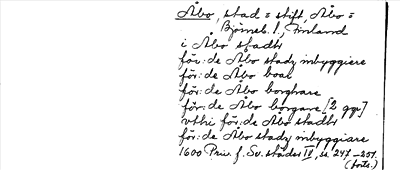 Åbo, stad = stift, Åbo =
Björneb. l., Finland
i Åbo stadtt
för: de Åbo stadz inbyggiere
för: de Åbo boar
för: de Åbo borghare
för: de Åbo borgare [2 ggr]
vthi för: de Åbo stadtt
för: de Åbo stadz inbyggiare
1600 Priv. f. Sv. städer II, se 247-251.
(forts.)